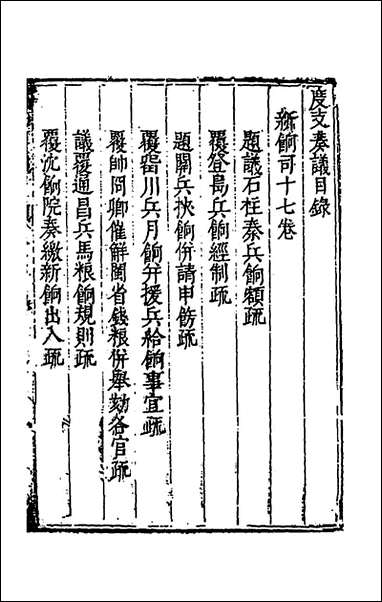 度支奏議目錄
新餉司十七卷
題議石柱秦兵餉額疏
覆登島兵餉經制疏
題關兵挾餉併請申飭疏
覆留川兵月餉弁援兵給餉事宜疏
覆帥冏卿催解閩省錢粮併舉劾各官疏
議覆通昌兵馬粮餉規則疏
覆沈餉院奏繳新餉出入疏